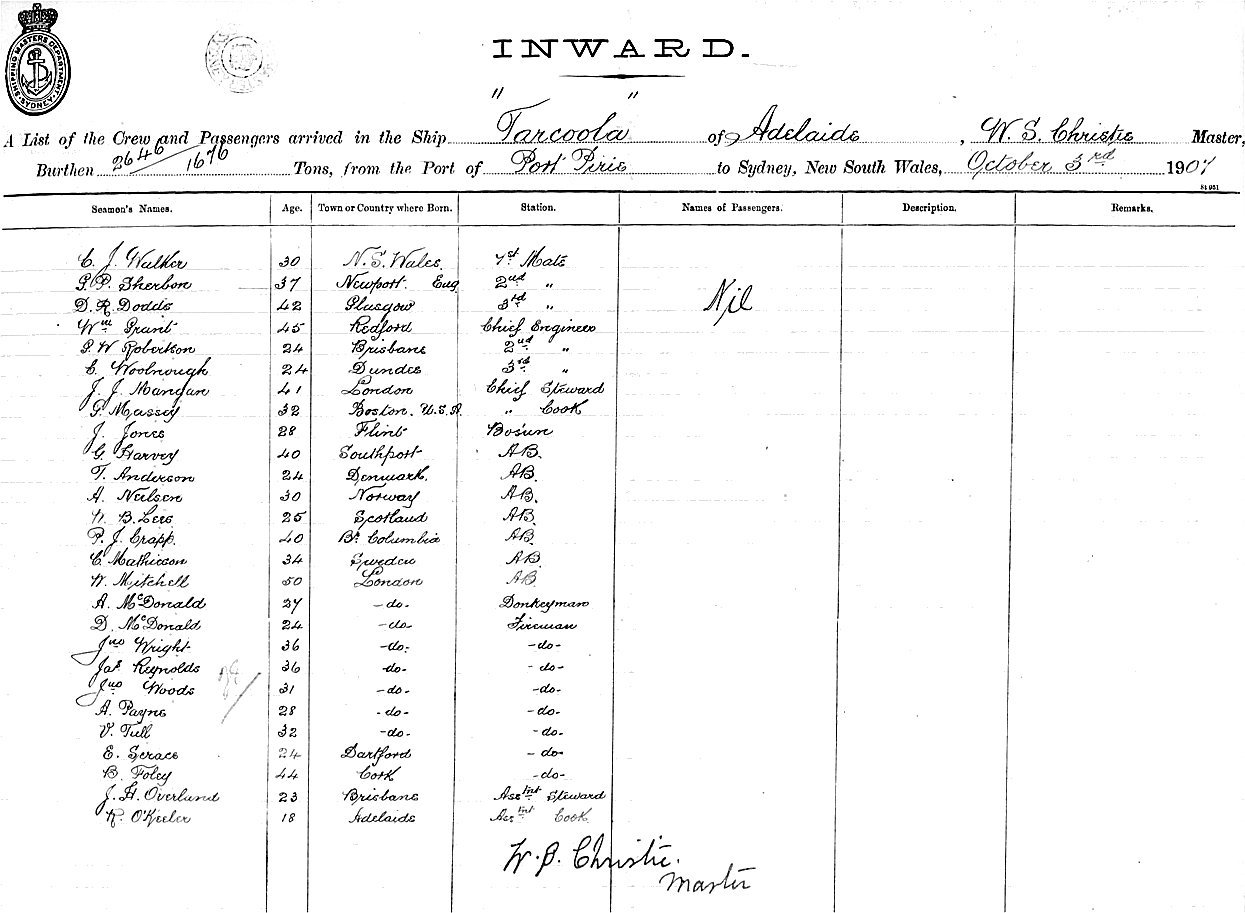 SHIPPING MASTERS DEPARTMENT SYDNEY
INWARD.
A List of the Crew and Passengers arrived in the Ship "Tarcoola" of Adelaide, W. S. Christie Master,
Burthen 2646/1676 Tons, from the Port of Port Pirie to Sydney, New South Wales, October 3rd 1907
St 951
Seamen's Names. Age. Town or Country where Born. Station. Names of Passengers. Description. Remarks.
C. J. Walker 30 N. S. Wales. 1st Mate
G. P. Sherbon 37 Newport. Eng 2nd "
D. R. Dodds 42 Glasgow 3rd " Nil
Wm Grant 45 Redford Chief Engineer
G. W Robertson 24 Brisbane 2nd "
C. Woolnough 24 Dundee 3rd "
J. J. Mangan 41 London Chief Steward
G. Massey 32 Boston. U.S.A. " Cook
J. Jones 28 Flint Bosun
G. Harvey 40 Southport AB.
T. Anderson 24 Denmark. AB.
A. Neilsen 30 Norway AB.
W. B. Lees 25 Scotland AB.
P. J. Crapp. 40 Bt Columbia AB.
C. Mathieson 34 Sweden AB.
W. Mitchell 50 London AB.
A. McDonald 27 -do- Donkeyman
D. McDonald 24 -do- Fireman
Jno Wright 36 -do- -do-
Jas Reynolds 36 -do- -do-
Jno Woods 31 -do- -do-
A. Payne 28 -do- -do-
V. Tull 32 -do- -do-
E. Scrace 24 Dartford -do-
B. Foley 44 Cork -do-
J. H. Overland 23 Brisbane Asstnt Steward
R. O'Keeler 18 Adelaide Asstnt Cook
W. S. Christie.
Master